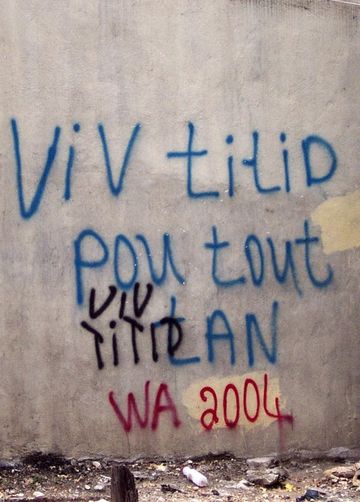 ViV titiD
pou tout
ViV
TiTiD
tAN
WA 2004